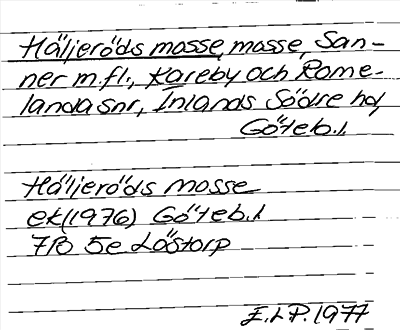 Häljeröds mosse, mosse, San-
ner m.fl., Kareby och Rome-
landa snr, Inlands Södre hd,
Göteb.l
Häljeröds mosse
ek(1976) Göteb.l
7B 5e Löstorp
E.L P. 1977